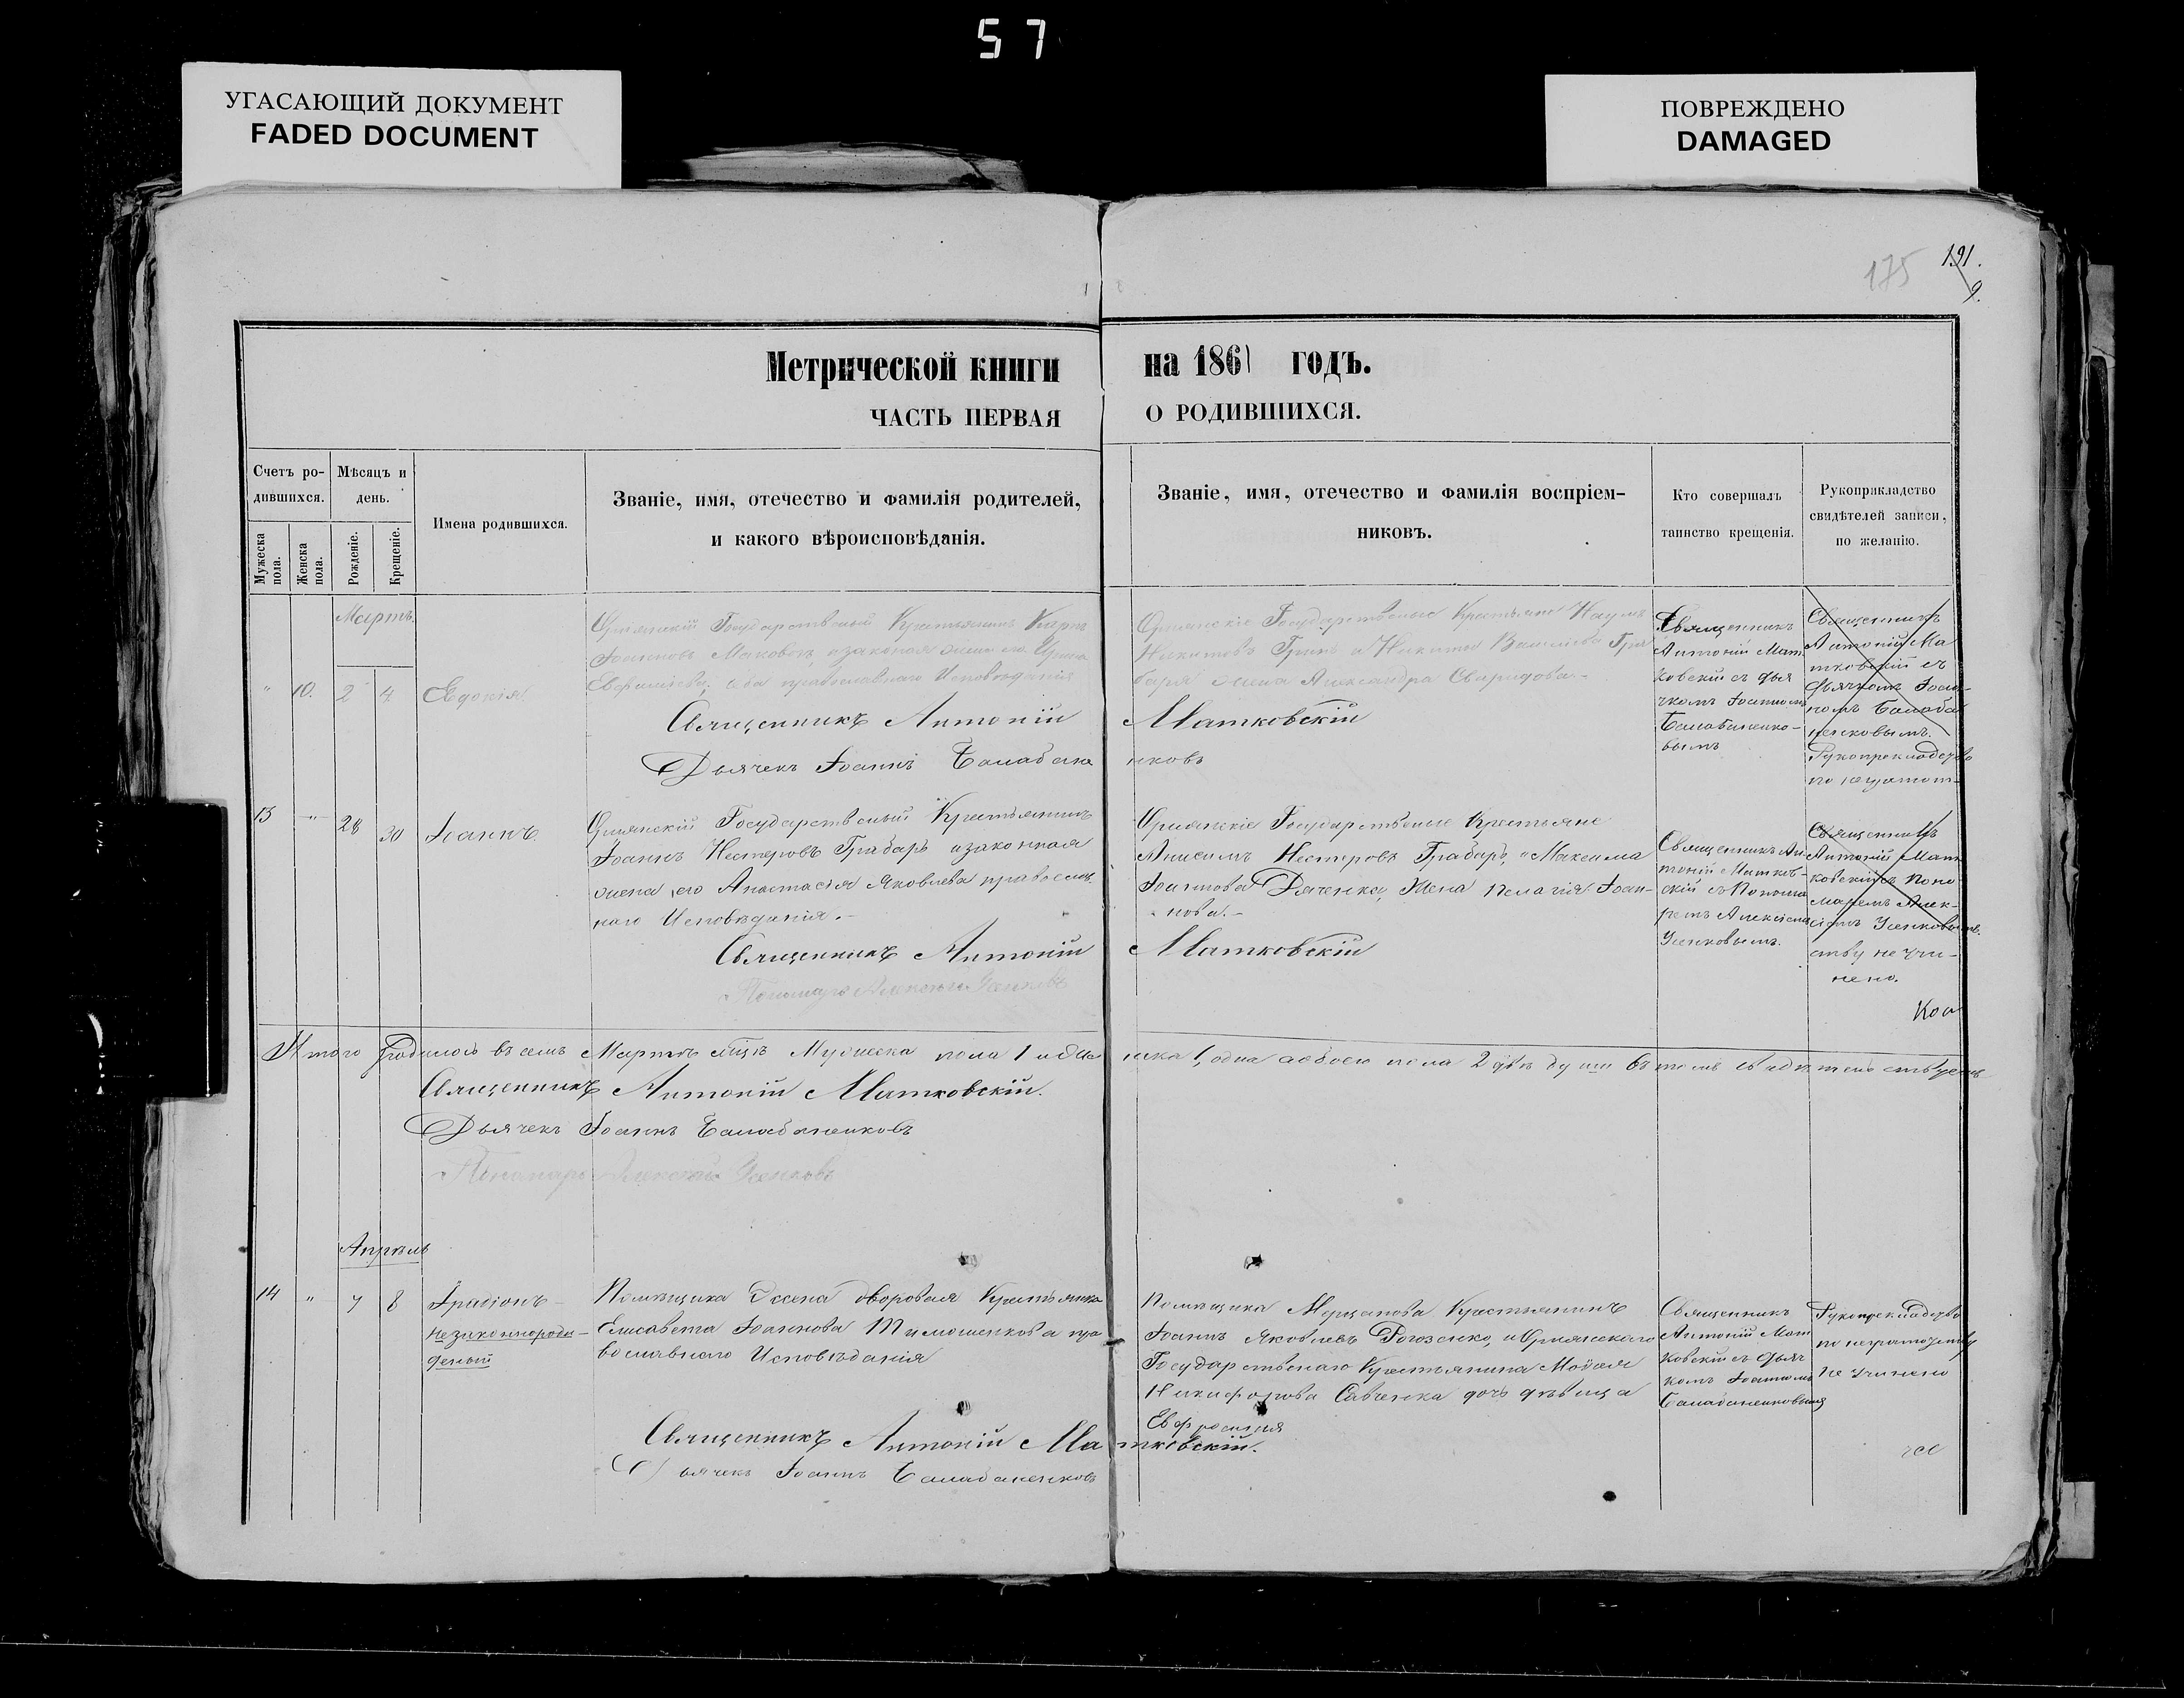 57
УГАСАЮЩИЙ ДОКУМЕНТ
FADED DOCUMENT
ПОВРЕЖДЕНО
DAMAGED
175
191.
9.
Метрической книги на 1861 годъ.
ЧАСТЬ ПЕРВАЯ О РОДИВШИХСЯ.
Счетъ ро-
дившихся.
Мужеска пола.
Женска пола.
Мѣсяцъ и
день.
Рожденіе.
Крещеніе.
Имена родившихся.
Званіе, имя, отечество и фамилія родителей,
и какого вѣроисповѣданія.
Званіе, имя, отечество и фамилія воспріем-
никовъ.
Кто совершалъ
таинство крещенія.
Рукоприкладство
свидѣтелей записи,
по желанію.
Мартъ.
" 10. 2 4. Евдокія
Государственный Крестьянинъ Карпъ
Іоанновъ Маковѣй, и законная жена его Ирина
оба православнаго Исповѣданія
Священникъ Антоній Матковскій
Дьячекъ Іоаннъ Балабаненковъ
Государственные Крестьяне Наумъ
Никитовъ Гринь и Никиты
жена Александра Свиридова.-
Священникъ
Антоній Мат
ковскій съ Дья
чкомъ Іоанномъ
Балабаненко-
вымъ
Священникъ
Антоній Ма
тковскій съ
Дьячкомъ Іоан-
номъ Балаба
ненковымъ.
Рукоприкладство
по неграмот-
13 " 28 30 Іоаннъ.
Государственный Крестьянинъ
Іоаннъ Нестеровъ Грабарь и законная
жена его Анастасія Яковлева православ-
наго Исповѣданія.-
Священникъ Антоній Матковскій
Пономарь Алексѣй Усенковъ
Государственные Крестьяне
Анисимъ Нестеровъ Грабарь, и Максима
Іоаннова Дяченка, жена Пелагія Іоан-
нова.-
Священникъ Ан
тоній Матков-
скій съ Понома
ремъ Алексѣемъ
Усенковымъ.
Священникъ
Антоній Мат
ковскій съ Поно
маремъ Алек-
сѣемъ Усенковымъ.
ству не учи-
нено.
Итого родилось въ семъ Мартѣ мцѣ Мужеска пола 1 одна обоего пола 2 двѣ души въ томъ свидѣтельствуемъ
Священникъ Антоній Матковскій.
Дьячекъ Іоаннъ Балабаненковъ
Пономарь Алексѣй Усенковъ
Апрѣль
14 " 7 8 Иродіонъ-
незаконнорож-
денный
Помѣщика дворовая Крестьянка
Елисавета Іоаннова Тимошенкова пра
вославнаго Исповѣданія
Священникъ Антоній Матковскій.
Дьячекъ Іоаннъ Балабаненковъ
Помѣщика Крестьянинъ
Іоаннъ Яковлевъ Рогозенко, и
Государственнаго Крестьянина
Никифорова Савченка дочь дѣвица
Евфросинія
Священникъ
Антоній Мат
ковскій съ Дьяч
комъ Іоанномъ
Балабаненковымъ
Рукоприкладство
по неграмотству
не учинено